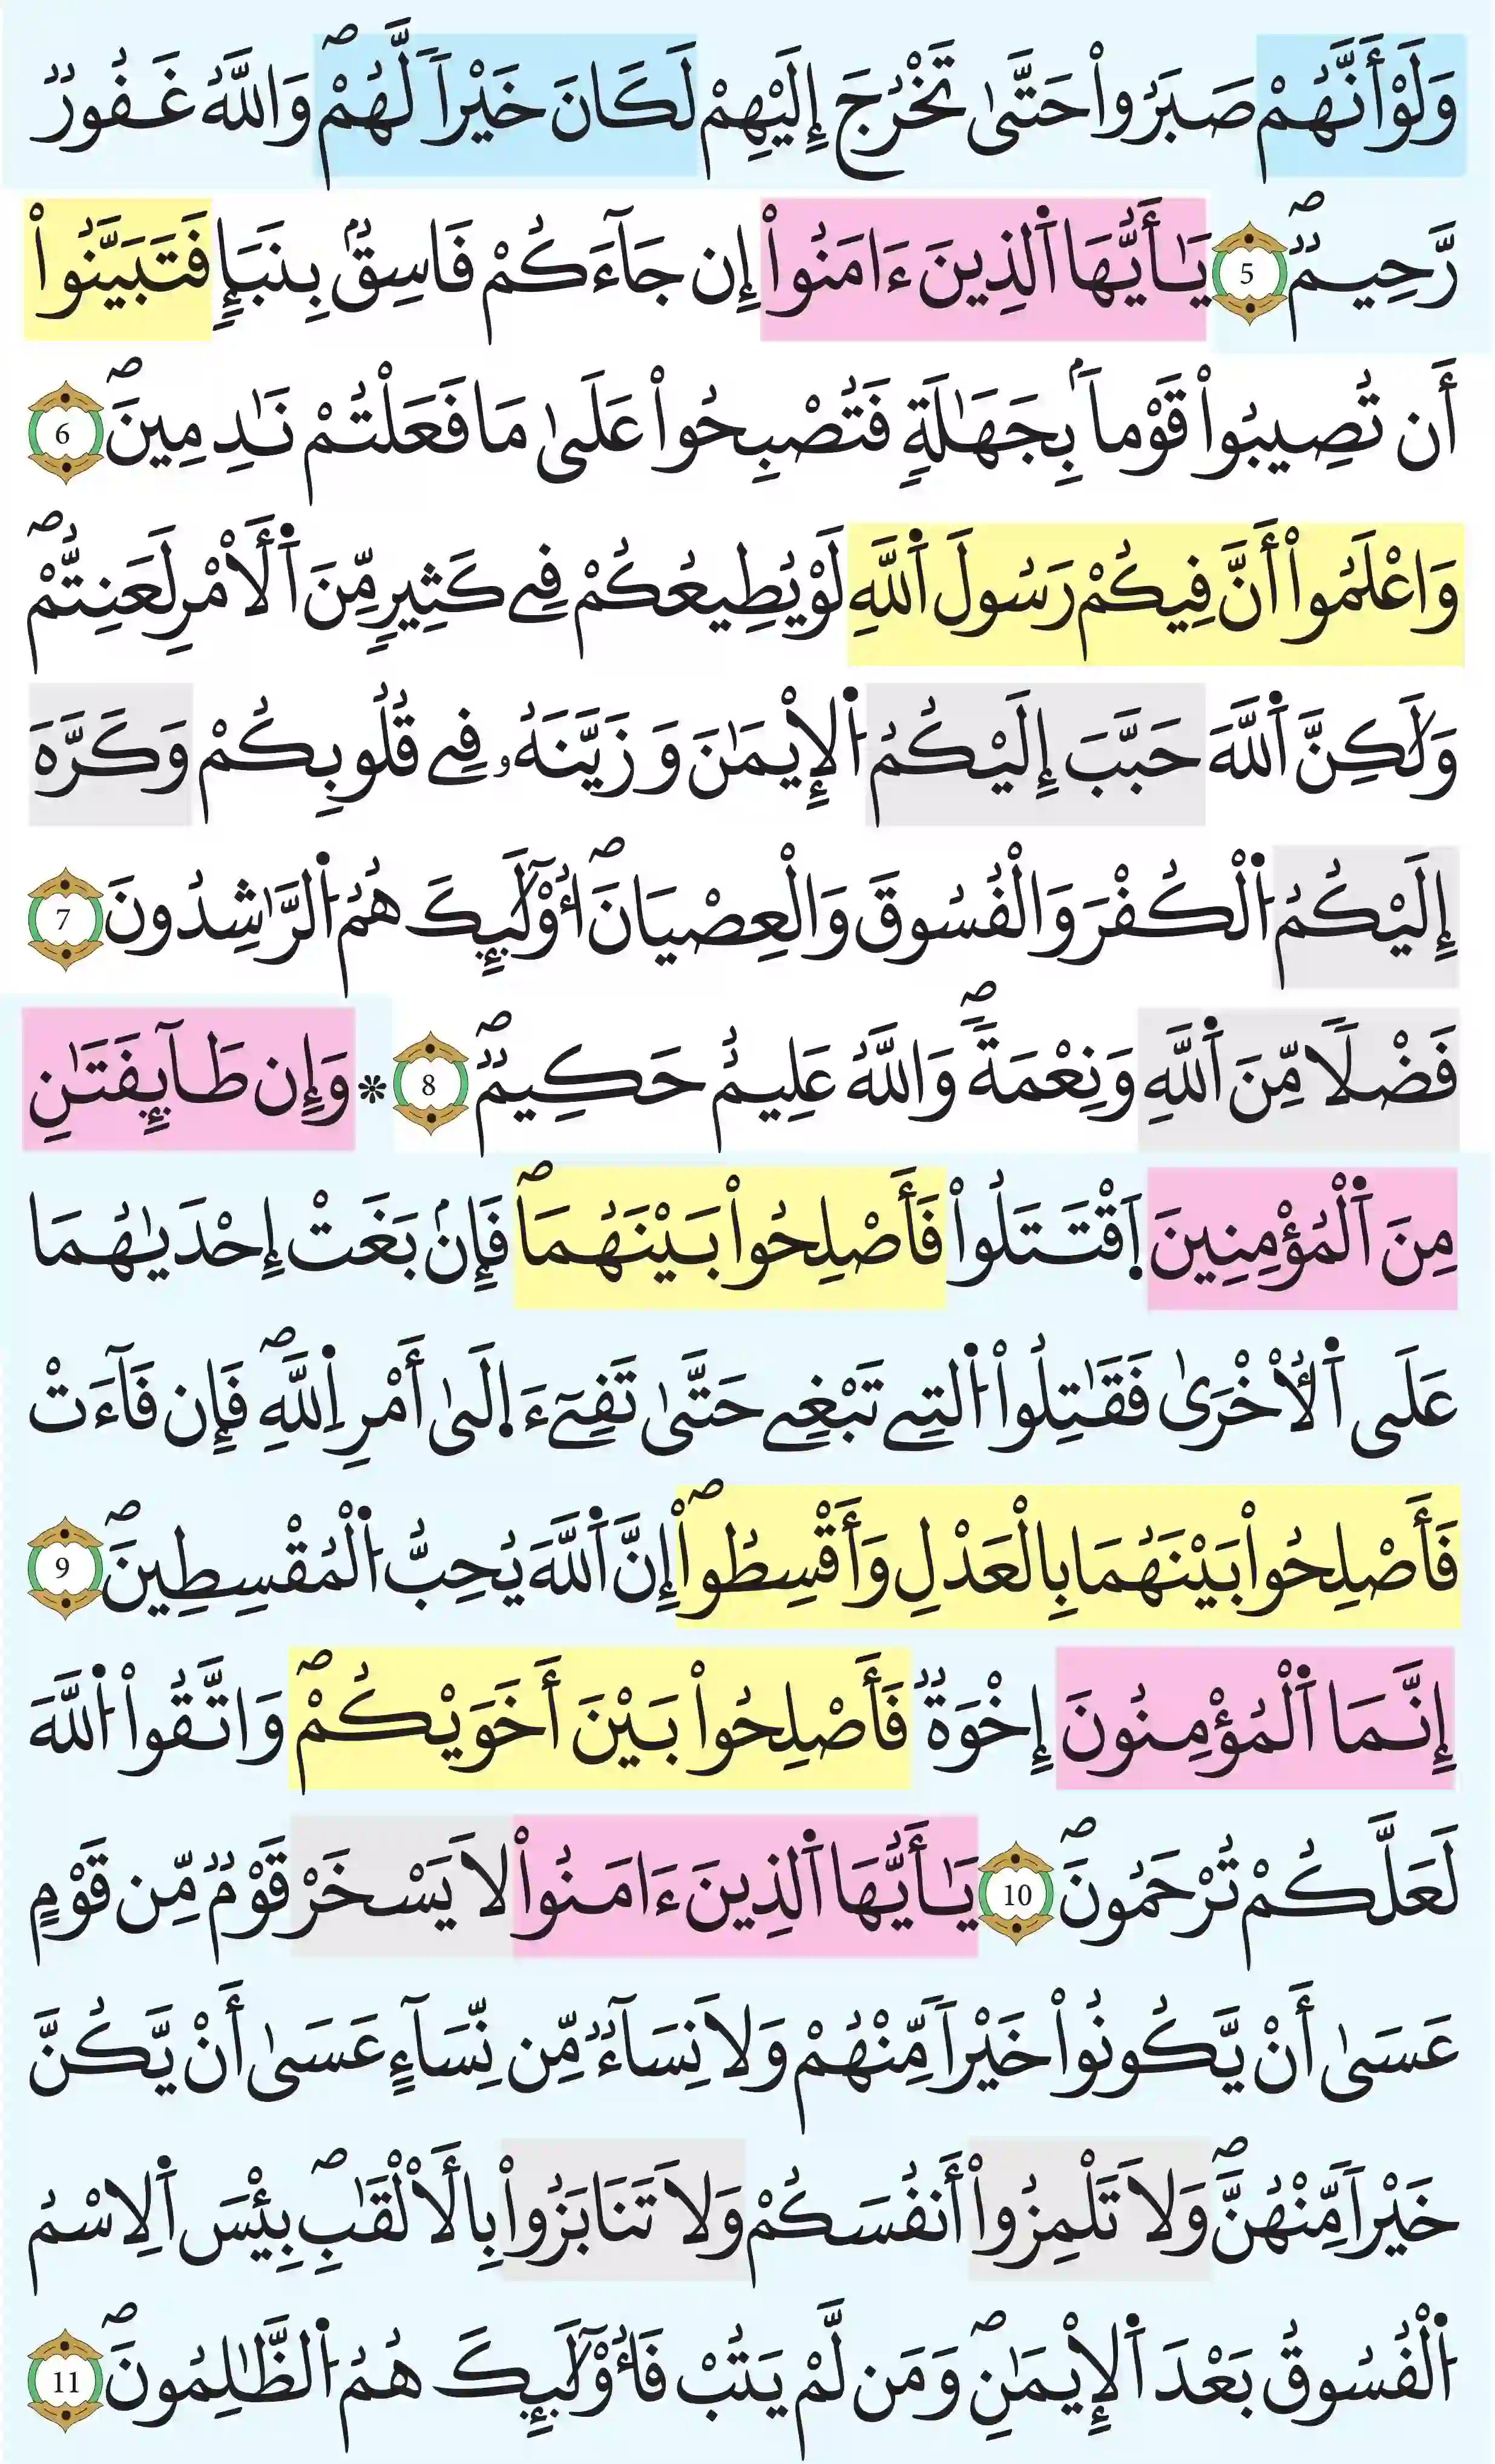 وَلَوْ أَنَّهُمْ صَبَرُواْ حَتَّىٰ تَخْرُجَ إِلَيْهِمْ لَكَانَ خَيْراٗ لَّهُمْۖ وَاللَّهُ غَفُورٞ
رَّحِيمٞۖ 5 يَٰأَيُّهَا اَ۬لذِينَ ءَامَنُواْ إِن جَآءَكُمْ فَاسِقُۢ بِنَبَإٖ فَتَبَيَّنُواْ
أَن تُصِيبُواْ قَوْماَۢ بِجَهَٰلَةٖ فَتُصْبِحُواْ عَلَىٰ مَا فَعَلْتُمْ نَٰدِمِينَۖ 6
وَاعْلَمُواْ أَنَّ فِيكُمْ رَسُولَ اَ۬للَّهِ لَوْ يُطِيعُكُمْ فِے كَثِيرٖ مِّنَ اَ۬لْأَمْرِ لَعَنِتُّمْۖ
وَلَٰكِنَّ اَ۬للَّهَ حَبَّبَ إِلَيْكُمُ اُ۬لْإِيمَٰنَ وَزَيَّنَهُۥ فِے قُلُوبِكُمْ وَكَرَّهَ
إِلَيْكُمُ اُ۬لْكُفْرَ وَالْفُسُوقَ وَالْعِصْيَانَۖ أُوْلَٰٓئِكَ هُمُ اُ۬لرَّٰشِدُونَ 7
فَضْلاٗ مِّنَ اَ۬للَّهِ وَنِعْمَةٗۖ وَاللَّهُ عَلِيمٌ حَكِيمٞۖ 8 * وَإِن طَآئِفَتَٰنِ
مِنَ اَ۬لْمُؤْمِنِينَ اَ۪قْتَتَلُواْ فَأَصْلِحُواْ بَيْنَهُمَاۖ فَإِنۢ بَغَتْ إِحْدَيٰهُمَا
عَلَى اَ۬لْأُخْرَىٰ فَقَٰتِلُواْ اُ۬لتِے تَبْغِے حَتَّىٰ تَفِےٓءَ اِ۪لَىٰ أَمْرِ اِ۬للَّهِۖ فَإِن فَآءَتْ
فَأَصْلِحُواْ بَيْنَهُمَا بِالْعَدْلِ وَأَقْسِطُواْۖ إِنَّ اَ۬للَّهَ يُحِبُّ اُ۬لْمُقْسِطِينَۖ 9
إِنَّمَا اَ۬لْمُؤْمِنُونَ إِخْوَةٞ فَأَصْلِحُواْ بَيْنَ أَخَوَيْكُمْۖ وَاتَّقُواْ اُ۬للَّهَ
لَعَلَّكُمْ تُرْحَمُونَۖ 10 يَٰأَيُّهَا اَ۬لذِينَ ءَامَنُواْ لَا يَسْخَرْ قَوْمٞ مِّن قَوْمٍ
عَسَىٰ أَنْ يَّكُونُواْ خَيْراٗ مِّنْهُمْ وَلَا نِسَآءٞ مِّن نِّسَآءٍ عَسَىٰ أَنْ يَّكُنَّ
خَيْراٗ مِّنْهُنَّۖ وَلَا تَلْمِزُواْ أَنفُسَكُمْ وَلَا تَنَابَزُواْ بِالْأَلْقَٰبِۖ بِئْسَ اَ۬لِاسْمُ
اُ۬لْفُسُوقُ بَعْدَ اَ۬لْإِيمَٰنِۖ وَمَن لَّمْ يَتُبْ فَأُوْلَٰٓئِكَ هُمُ اُ۬لظَّٰلِمُونَۖ 11